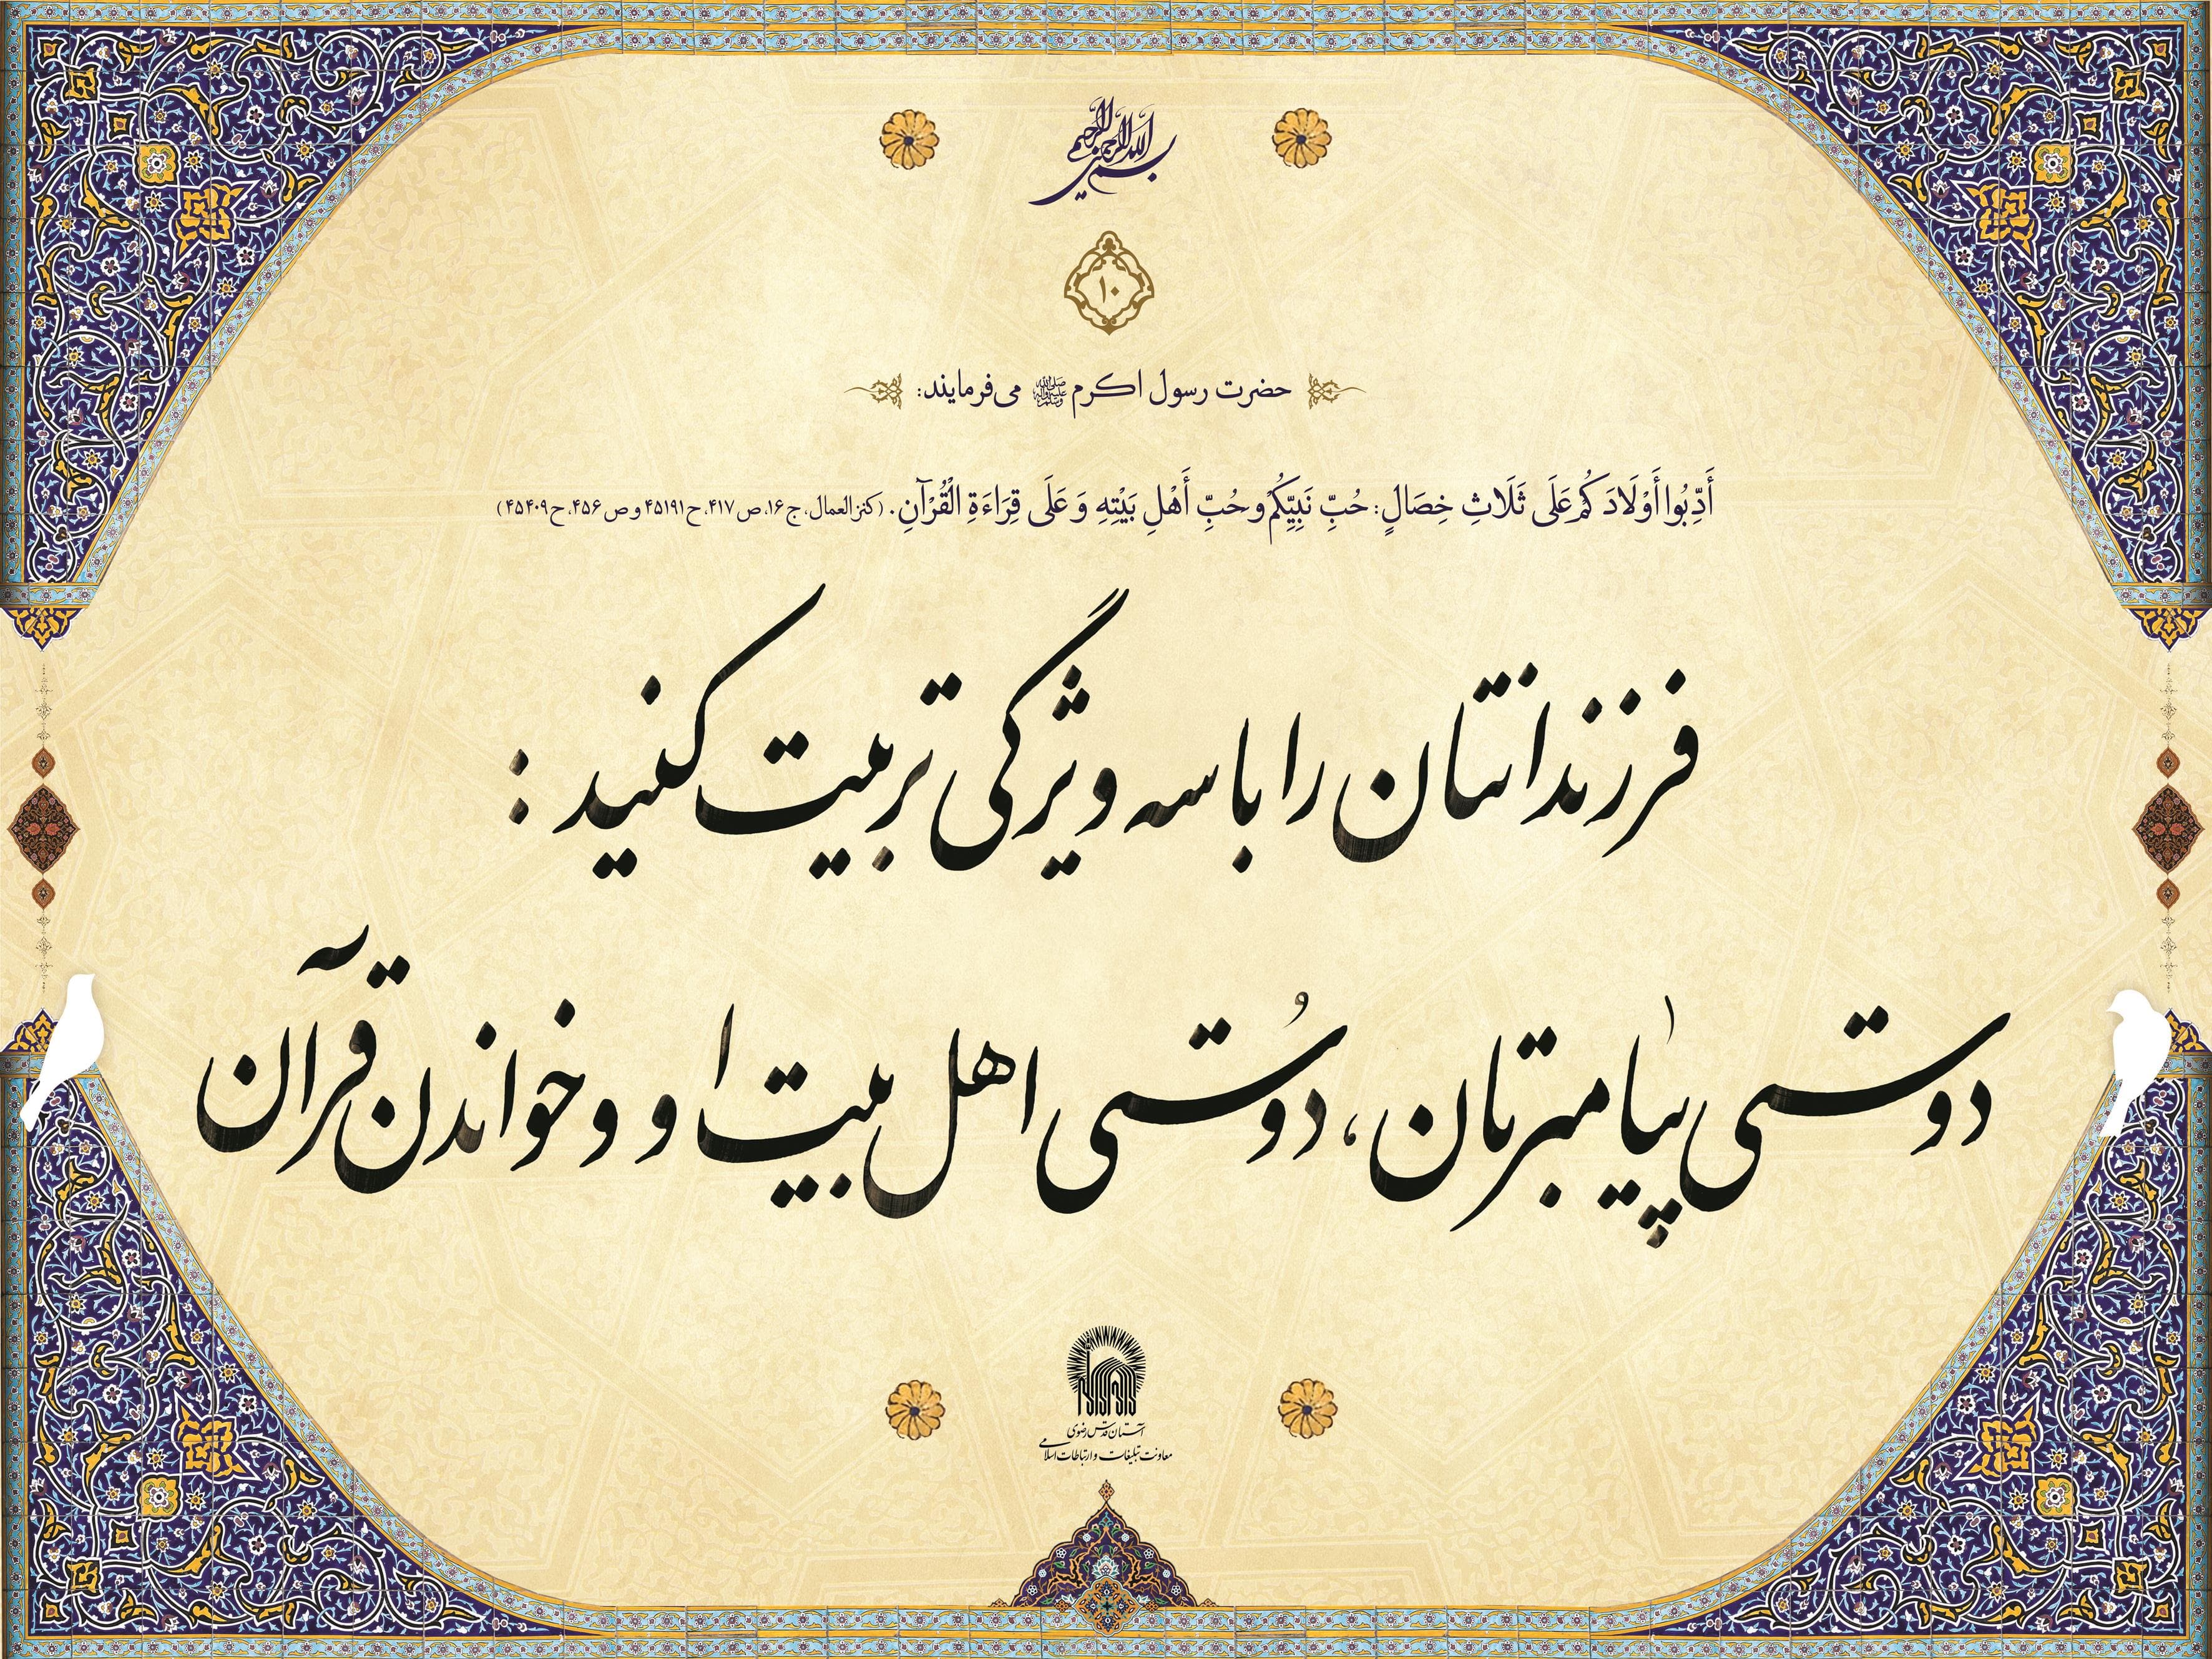 بسم الله الرحمن الرحیم
۱۰
حضرت رسول اکرم ﷺ می‌فرمایند:
أَدِّبُوا أَوْلَادَكُمْ عَلَى ثَلَاثِ خِصَالٍ: حُبِّ نَبِيِّكُمْ وَ حُبِّ أَهْلِ بَيْتِهِ وَ عَلَى قِرَاءَةِ الْقُرْآنِ. (کنز العمال، ج۱۶، ص۴۱۷، ح۴۵۱۹۱ و ص۴۵۶، ح۴۵۴۰۹)
فرزندانتان را با سه ویژگی تربیت کنید :
دوستی پیامبرتان، دوستی اهل بیت او و خواندن قرآن
آستان قدس رضوی
معاونت تبلیغات و ارتباطات اسلامی